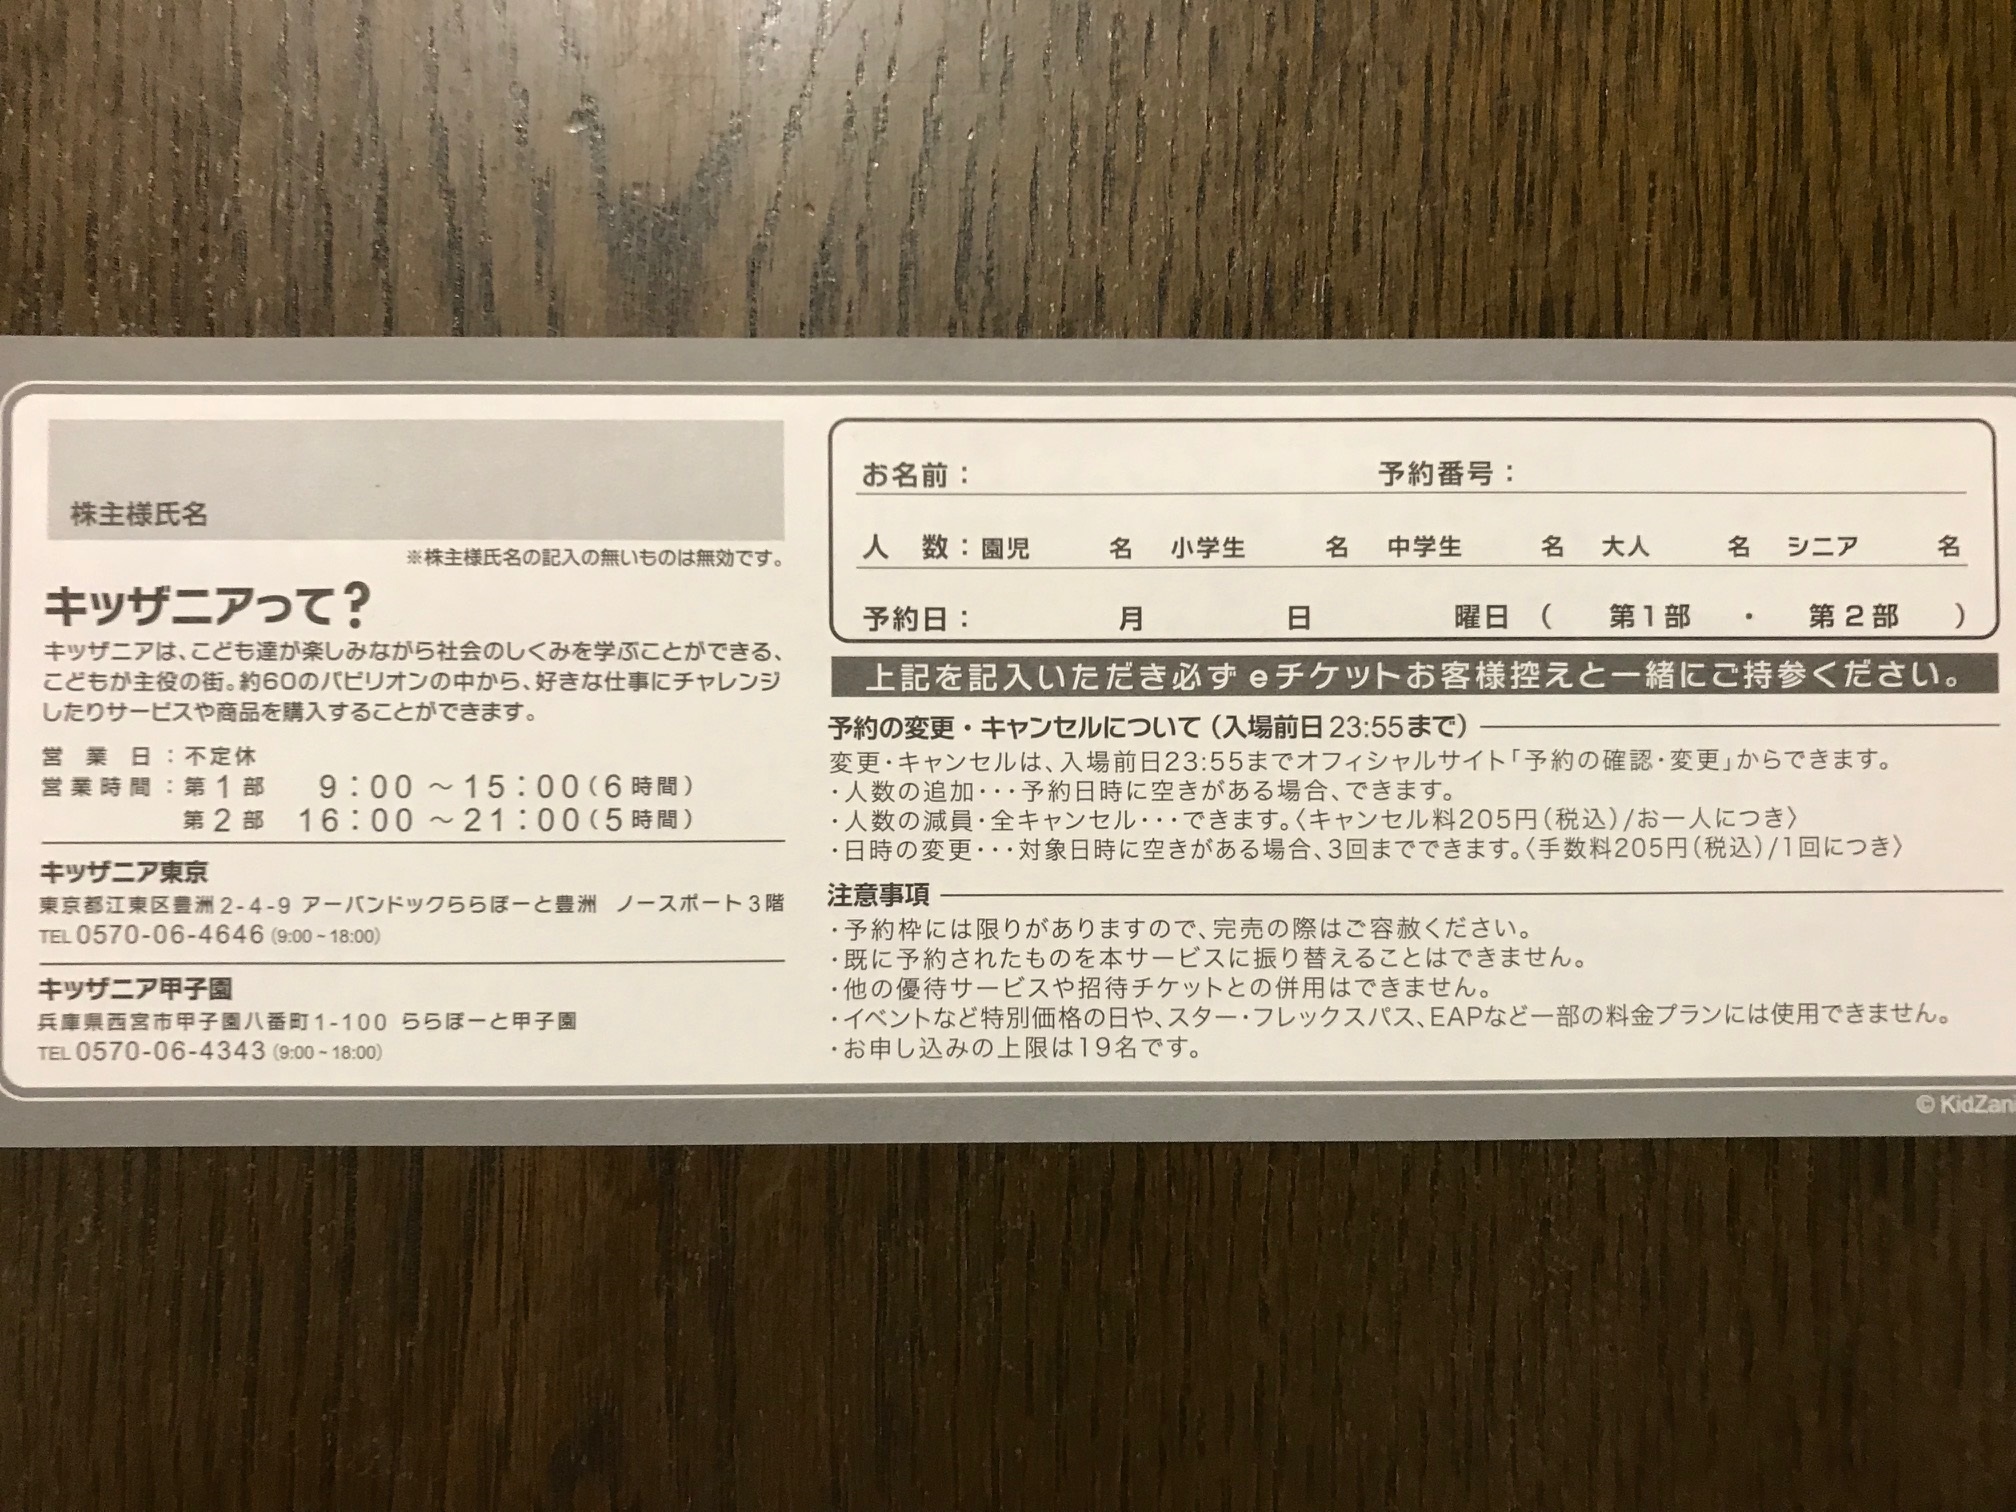 株主様氏名
※株主様氏名の記入の無いものは無効です。
キッザニアって？
キッザニアは、こども達が楽しみながら社会のしくみを学ぶことができる、
こどもが主役の街。約60のパビリオンの中から、好きな仕事にチャレンジ
したりサービスや商品を購入することができます。
営業日：不定休
営業時間：第1部 9：00 ～15：00(6時間)
第2部 16：00 ～21：00(5時間)
キッザニア東京
東京都江東区豊洲2-4-9 アーバンドックららぽーと豊洲 ノースポート3階
TEL 0570-06-4646 (9:00～18:00)
キッザニア甲子園
兵庫県西宮市甲子園八番町1-100 ららぽーと甲子園
TEL 0570-06-4343 (9:00～18:00)
お名前： 予約番号：
人 数：園児 名 小学生 名 中学生 名 大人 名 シニア 名
予約日： 月 日 曜日 ( 第1部 ・ 第2部 )
上記を記入いただき必ずeチケットお客様控えと一緒にご持参ください。
予約の変更・キャンセルについて（入場前日23:55まで）
変更・キャンセルは、入場前日23:55までオフィシャルサイト「予約の確認・変更」からできます。
・人数の追加・・・予約日時に空きがある場合、できます。
・人数の減員・全キャンセル・・・できます。〈キャンセル料205円（税込）/お一人につき〉
・日時の変更・・・対象日時に空きがある場合、3回までできます。〈手数料205円（税込）/1回につき〉
注意事項
・予約枠には限りがありますので、完売の際はご容赦ください。
・既に予約されたものを本サービスに振り替えることはできません。
・他の優待サービスや招待チケットとの併用はできません。
・イベントなど特別価格の日や、スター・フレックスパス、EAPなど一部の料金プランには使用できません。
・お申し込みの上限は19名です。
© KidZani